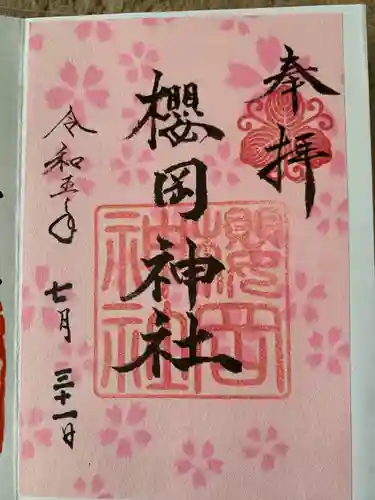 奉拝
櫻岡神社
櫻岡神社
令和五年
七月
三十一日